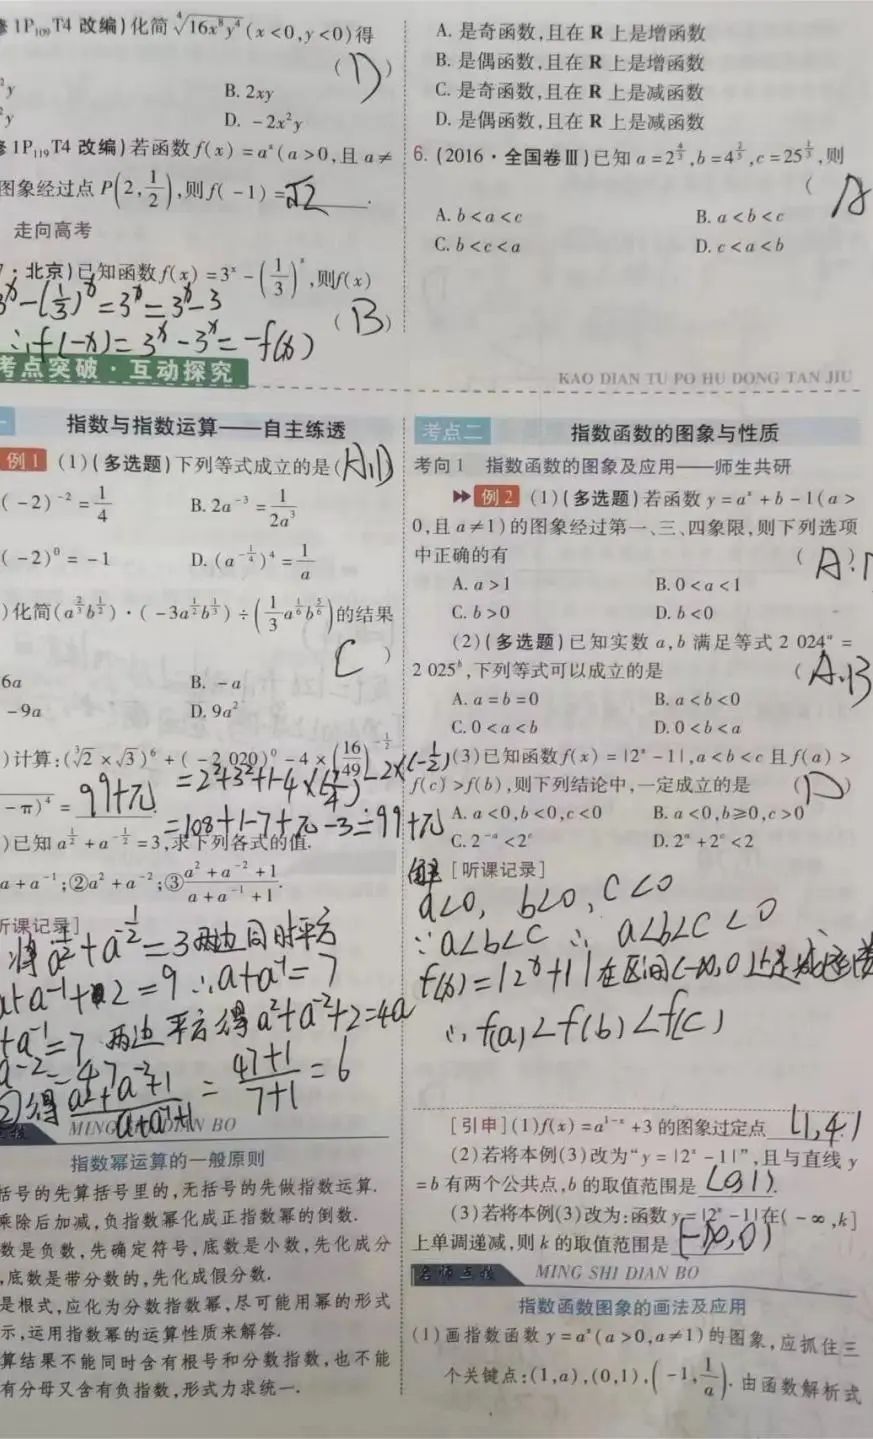 1P109T4 改编)化简⁴√16x⁸y⁴(x<0,y<0)得
( D )
²y B. 2xy
²y D. -2x²y
1P119T4 改编)若函数f(x)=aˣ(a>0,且a≠
图象经过点P(2,1/2),则f(-1)=√2.
走向高考
·北京)已知函数f(x)=3ˣ-(1/3)ˣ,则f(x)
( B )
3ˣ-(1/3)ˣ=3ˣ=3ˣ-3
∴f(-x)=3ˣ-3ˣ=-f(x)
A. 是奇函数,且在R上是增函数
B. 是偶函数,且在R上是增函数
C. 是奇函数,且在R上是减函数
D. 是偶函数,且在R上是减函数
6. (2016·全国卷Ⅲ)已知a=2^(4/3),b=4^(2/3),c=25^(1/3),则
( A
A. b<a<c B. a<b<c
C. b<c<a D. c<a<b
考点突破·互动探究
KAO DIAN TU PO HU DONG TAN JIU
指数与指数运算——自主练透
例1 (1)(多选题)下列等式成立的是(A,D)
(-2)⁻²=1/4 B. 2a⁻³=1/2a³
(-2)⁰=-1 D. (a^(-1/4))⁴=1/a
)化简(a^(2/3)b^(1/2))·(-3a^(1/2)b^(1/3))÷(1/3a^(1/6)b^(5/6))的结果
C )
6a B. -a
-9a D. 9a²
)计算:(³√2×√3)⁶+(-2 020)⁰-4×(16/49)^(-1/2)
-π)⁴=99+π.
=2²+3²+1-4×(7/4)-2×(-1/2)
=108+1-7+π-3=99+π
)已知a^(1/2)+a^(-1/2)=3,求下列各式的值.
a+a⁻¹;②a²+a⁻²;③(a²+a⁻²+1)/(a+a⁻¹+1).
听课记录]
将a^(1/2)+a^(-1/2)=3两边同时平方
a+a⁻¹+2=9∴a+a⁻¹=7
+a⁻¹=7 两边平方得a²+a⁻²+2=4a
a⁻²=47
②得(a²+a⁻²+1)/(a+a⁻¹+1)=(47+1)/(7+1)=6
MING SHI DIAN BO
指数幂运算的一般原则
括号的先算括号里的,无括号的先做指数运算.
乘除后加减,负指数幂化成正指数幂的倒数.
数是负数,先确定符号,底数是小数,先化成分
,底数是带分数的,先化成假分数.
是根式,应化为分数指数幂,尽可能用幂的形式
示,运用指数幂的运算性质来解答.
算结果不能同时含有根号和分数指数,也不能
有分母又含有负指数,形式力求统一.
考点二 指数函数的图象与性质
考向1 指数函数的图象及应用——师生共研
例2 (1)(多选题)若函数y=aˣ+b-1(a>
0,且a≠1)的图象经过第一、三、四象限,则下列选项
中正确的有 ( A. )
A. a>1 B. 0<a<1
C. b>0 D. b<0
(2)(多选题)已知实数a,b满足等式2 024ᵃ=
2 025ᵇ,下列等式可以成立的是 ( A,B
A. a=b=0 B. a<b<0
C. 0<a<b D. 0<b<a
(3)已知函数f(x)=|2ˣ-1|,a<b<c且f(a)>
f(c)>f(b),则下列结论中,一定成立的是 ( D )
A. a<0,b<0,c<0 B. a<0,b≥0,c>0
C. 2⁻ᵃ<2ᶜ D. 2ᵃ+2ᶜ<2
解[听课记录]
a<0, b<0, c<0
∵a<b<c ∴a<b<c<0
f(x)=|2ˣ+1|在区间(-∞,0)上是减函数
∴f(a)<f(b)<f(c)
[引申](1)f(x)=a¹⁻ˣ+3的图象过定点(1,4)
(2)若将本例(3)改为“y=|2ˣ-1|”,且与直线y
=b有两个公共点,b的取值范围是(0,1).
(3)若将本例(3)改为:函数y=|2ˣ-1|在(-∞,k]
上单调递减,则k的取值范围是(-∞,0)
名师点拨 MING SHI DIAN BO
指数函数图象的画法及应用
(1)画指数函数y=aˣ(a>0,a≠1)的图象,应抓住三
个关键点:(1,a),(0,1),(-1,1/a).由函数解析式